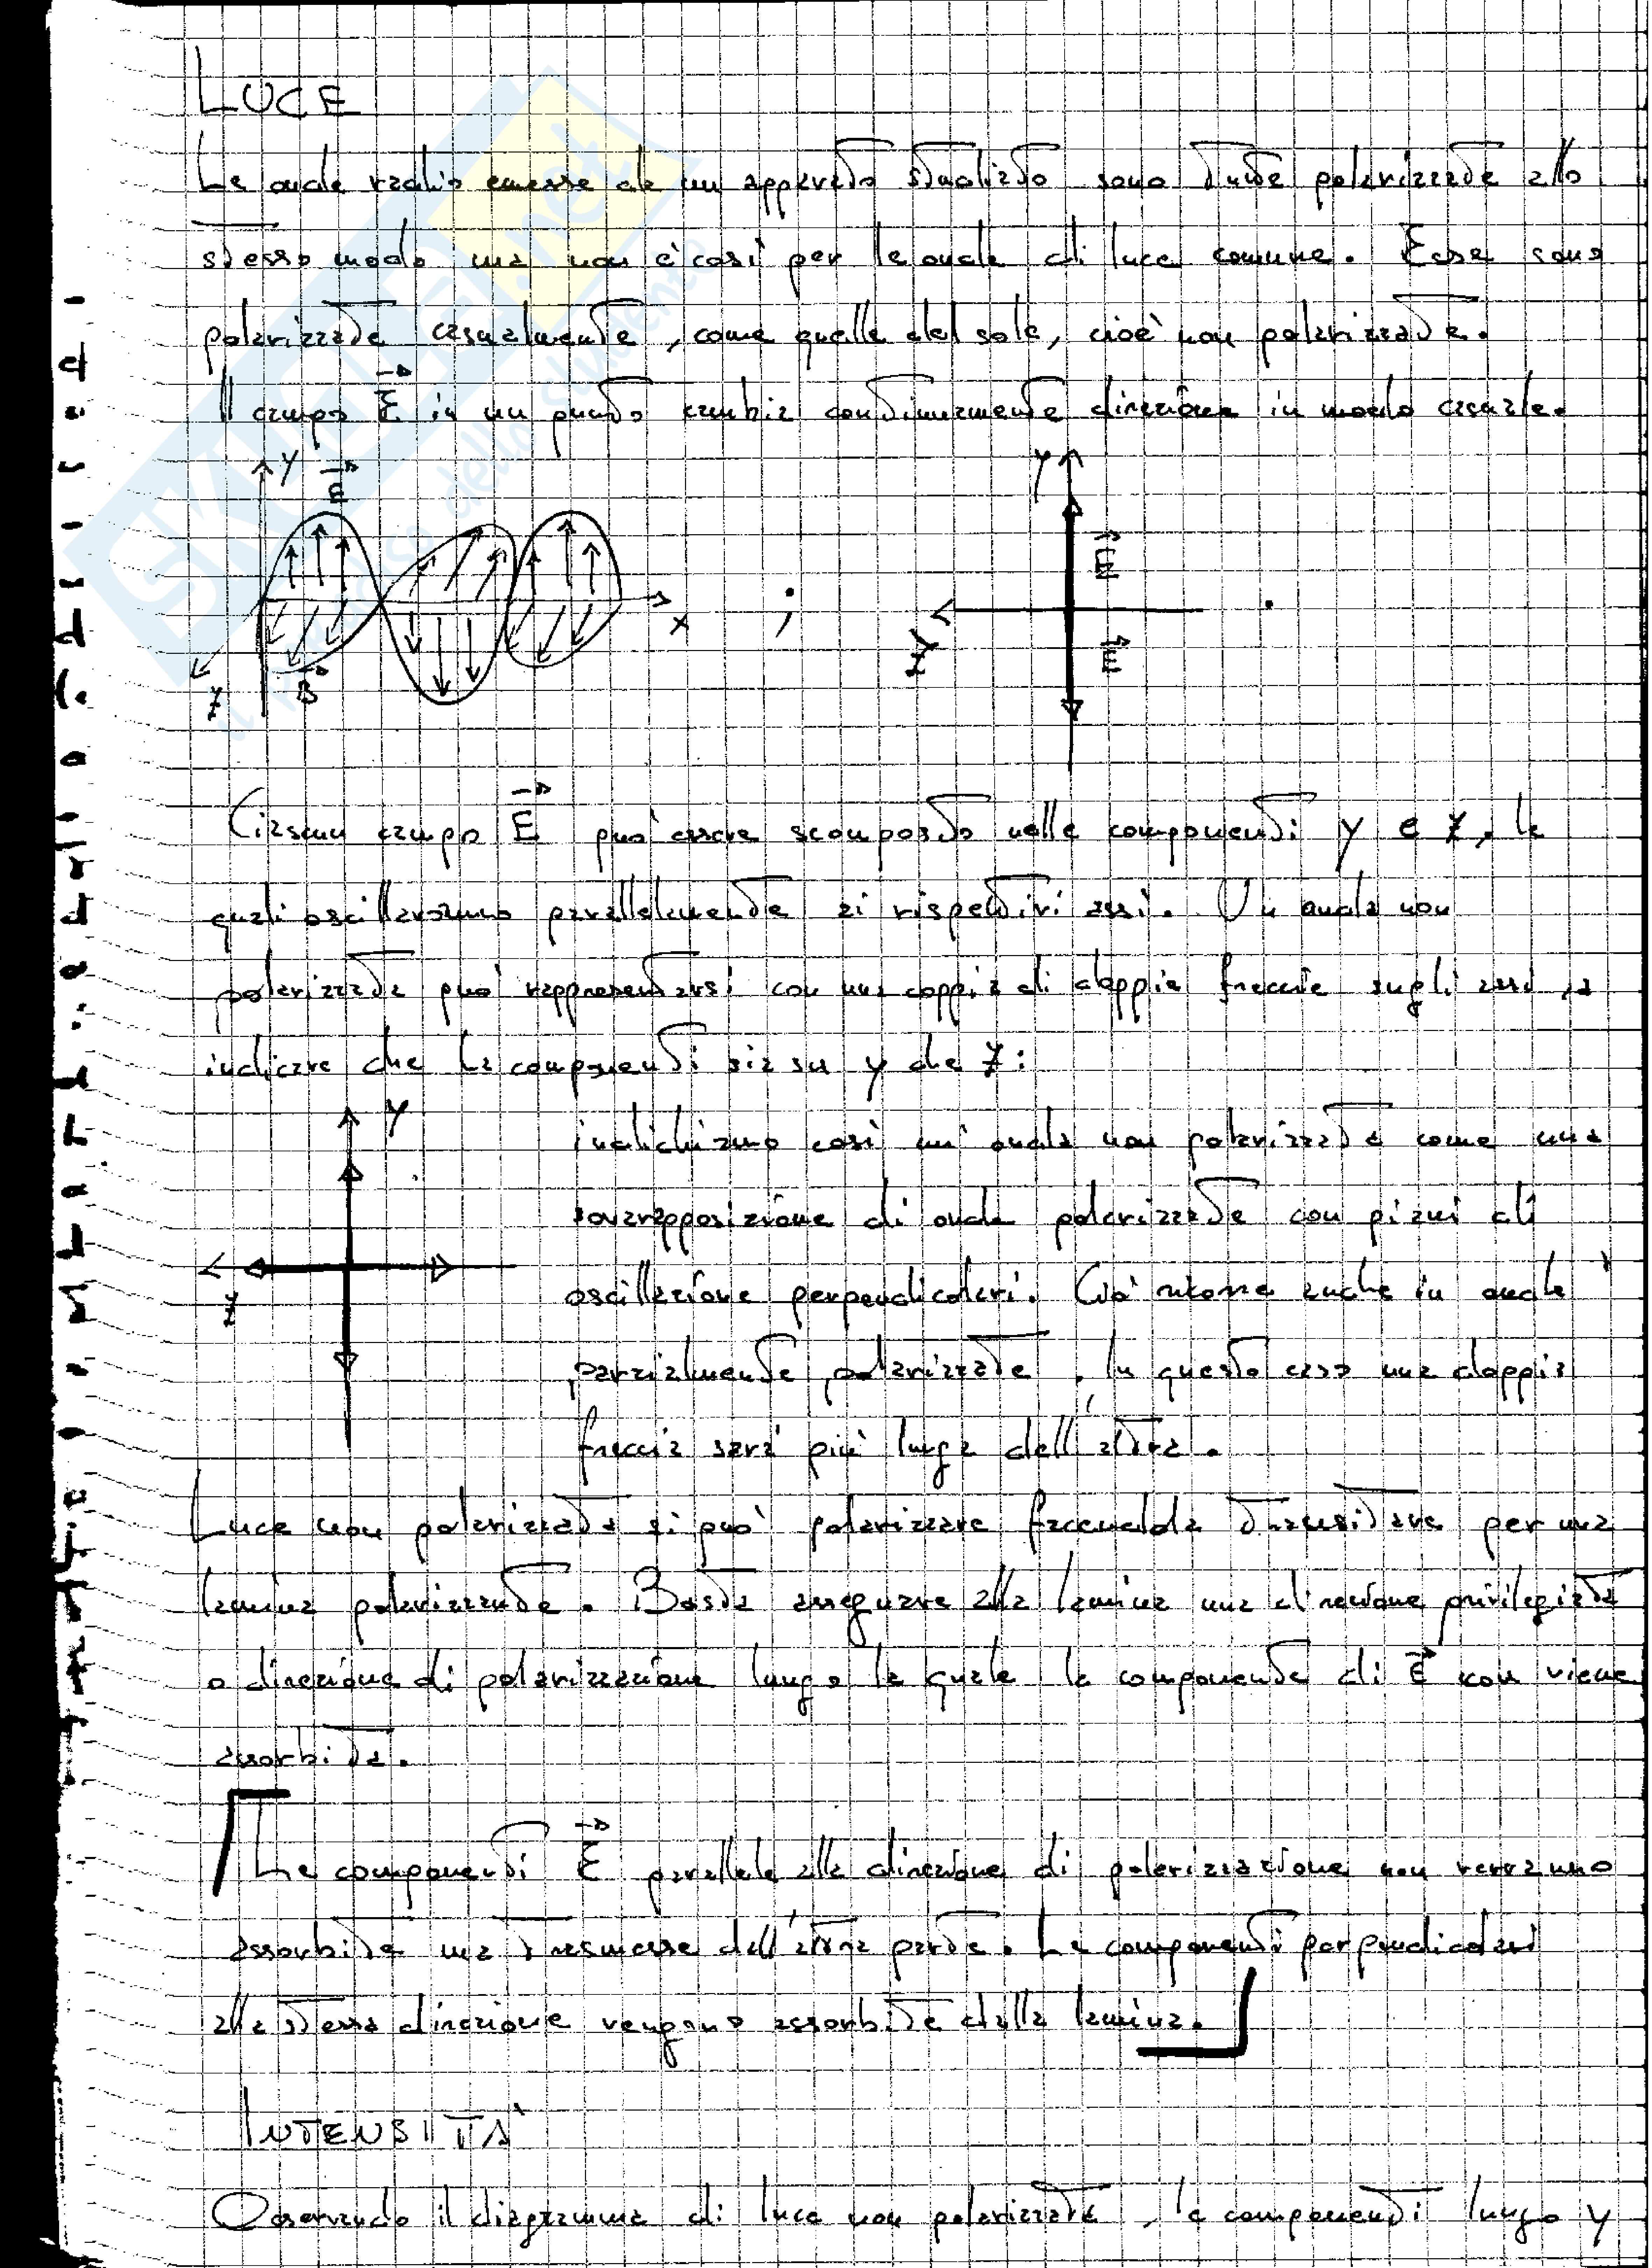 LUCE
Le onde radio emesse da un apparato studiato sono tutte polarizzate allo
stesso modo ma non è così per le onde di luce comune. Esse sono
polarizzate casualmente, come quelle del sole, cioè non polarizzate.
Il campo E in un punto cambia continuamente direzione in modo casuale.
y E
y
E
x ;
z
z B
E
Ciascun campo E può essere scomposto nelle componenti y e z, le
quali oscilleranno parallelamente ai rispettivi assi. Un onda non
polarizzata può rappresentarsi con una coppia di doppie freccie sugli assi a
indicare che ha componenti sia su y che z:
y
indichiamo così un'onda non polarizzata come una
sovrapposizione di onde polarizzate con piani di
z
oscillazione perpendicolari. Ciò anche in onde
parzialmente polarizzate. In questo caso una doppia
freccia sarà più lunga dell'altra.
Luce non polarizzata si può polarizzare facendola transitare per una
lamina polarizzante. Basta assegnare alla lamina una direzione privilegiata
o direzione di polarizzazione lungo la quale la componente di E non viene
assorbita.
Le componenti E parallele alla direzione di polarizzazione non verranno
assorbite ma trasmesse dall'altra parte. Le componenti perpendicolari
alla stessa direzione vengono assorbite dalla lamina.
INTENSITÀ
Osservando il diagramma di luce non polarizzata, le componenti lungo y